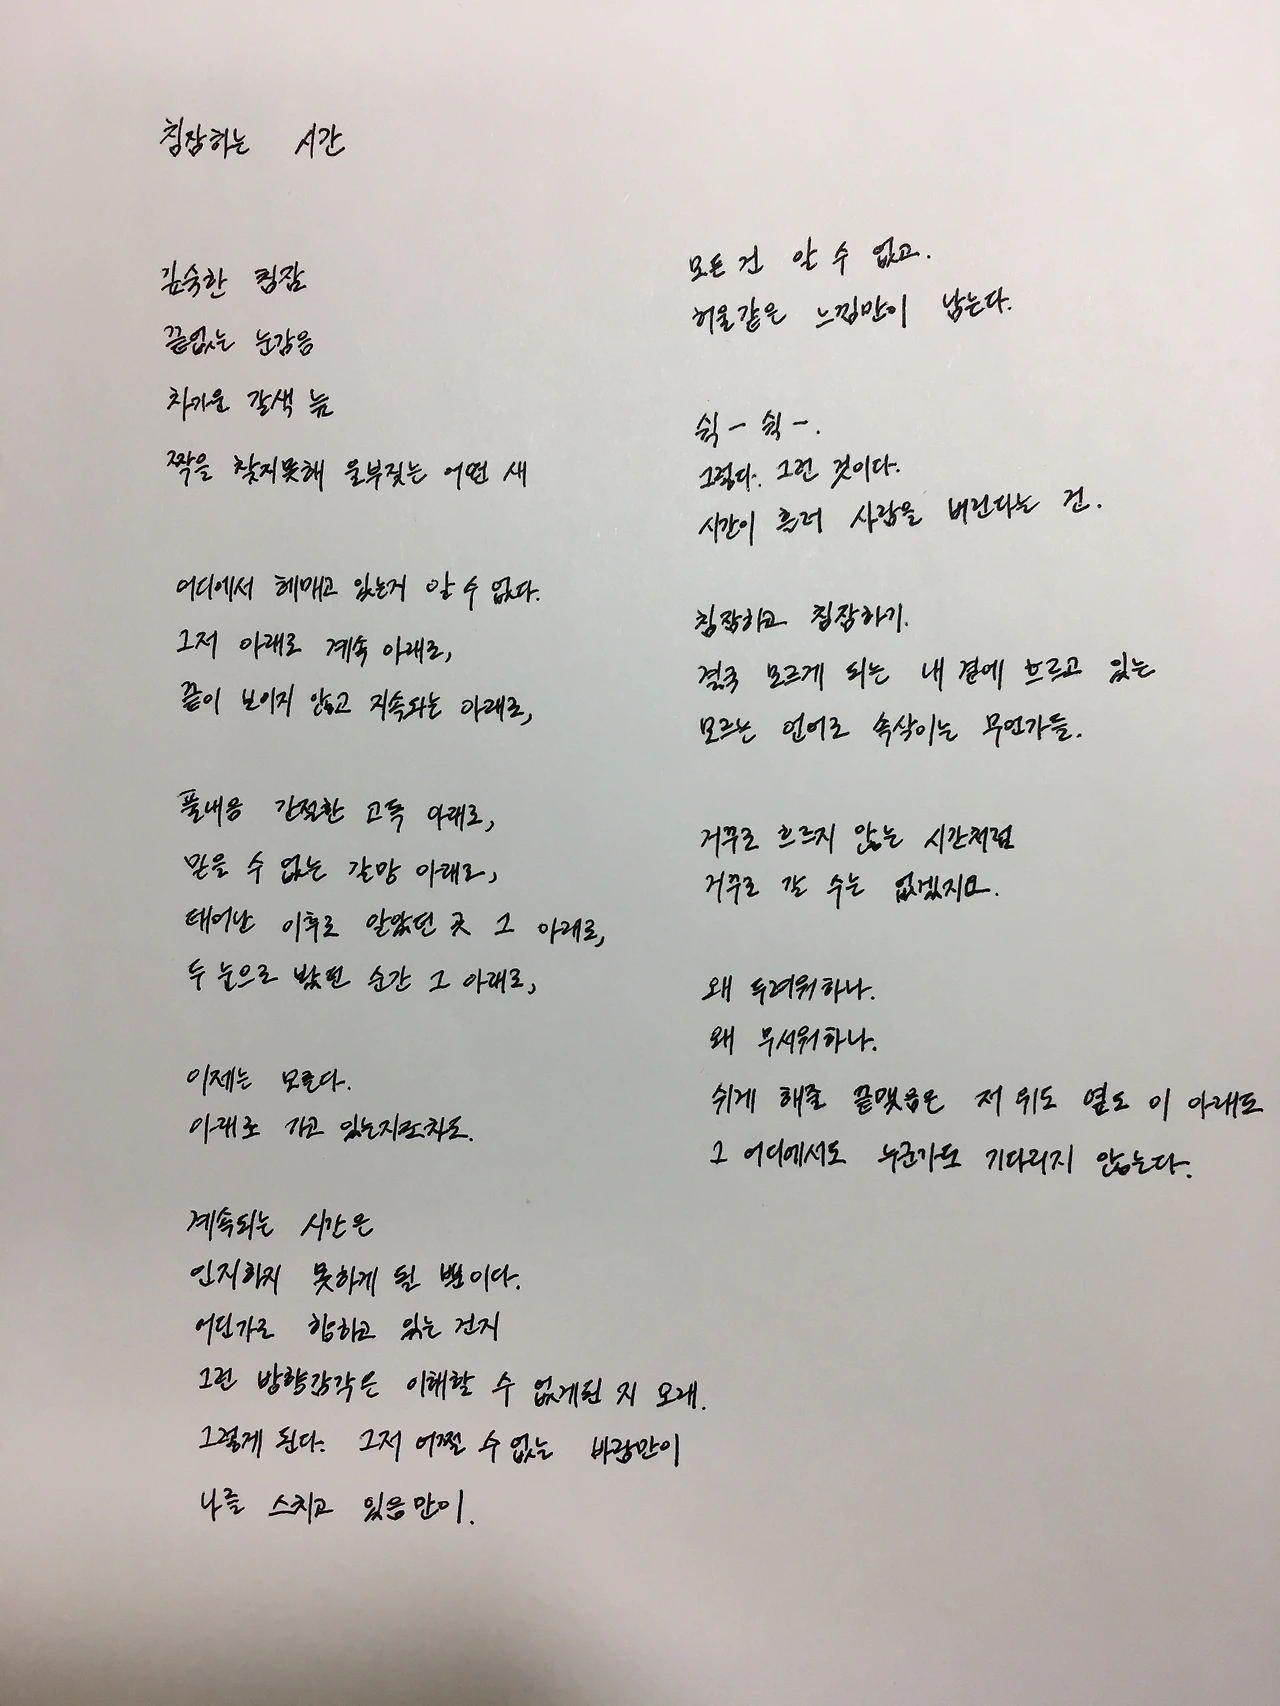 침잠하는 시간
깊숙한 침잠
끝없는 눈감음
차가운 갈색 늪
짝을 찾지못해 울부짖는 어떤 새
어디에서 헤매고 있는거 알 수 없다.
그저 아래로 계속 아래로,
끝이 보이지 않고 지속되는 아래로,
풀내음 간절한 고독 아래로,
믿을 수 없는 갈망 아래로,
태어난 이후로 알았던 곳 그 아래로,
두 눈으로 봤던 순간 그 아래로,
이제는 모른다.
아래로 가고 있는지조차도.
계속되는 시간은
인지하지 못하게 될 뿐이다.
어딘가로 향하고 있는 건지
그런 방향감각은 이해할 수 없게된 지 오래.
그렇게 된다. 그저 어쩔 수 없는 바람만이
나를 스치고 있음만이.
모든 건 알 수 없고.
허울같은 느낌만이 남는다.
쉭ㅡ 쉭ㅡ.
그렇다. 그런 것이다.
시간이 흘러 사람을 버린다는 건.
침잠하고 침잠하기.
결국 모르게 되는 내 곁에 흐르고 있는
모르는 언어로 속삭이는 무언가들.
거꾸로 흐르지 않는 시간처럼
거꾸로 갈 수는 없겠지요.
왜 두려워하나.
왜 무서워하나.
쉬게 해줄 끝맺음은 저 위도 옆도 이 아래도
그 어디에서도 누군가도 기다리지 않는다.